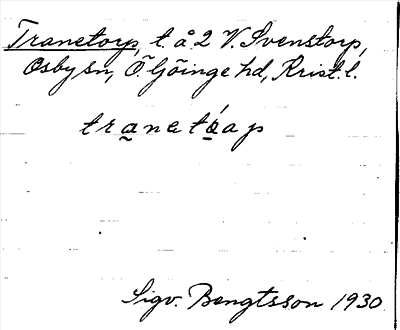 Tranetorp, t. å 2 V. Svenstorp,
Osby sn, Ö. Göinge hd, Krist. l.
tranetåap
Sigv. Bengtsson 1930